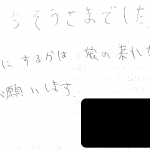 うそうさまでした
にするかは 娘の来れ
願いします。